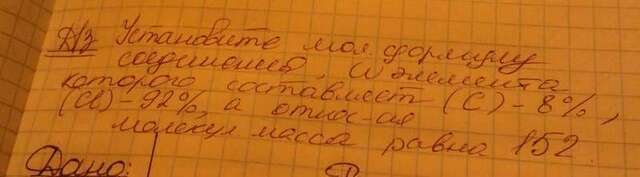 Д/з Установите мол. формулу
соединения, W элемента
которого составляет (С) - 8%,
(Cl) - 92%, а относ-ая
молекул. масса равна 152.
Дано: